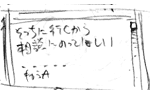 そっちに行くから
相談にのってほしい